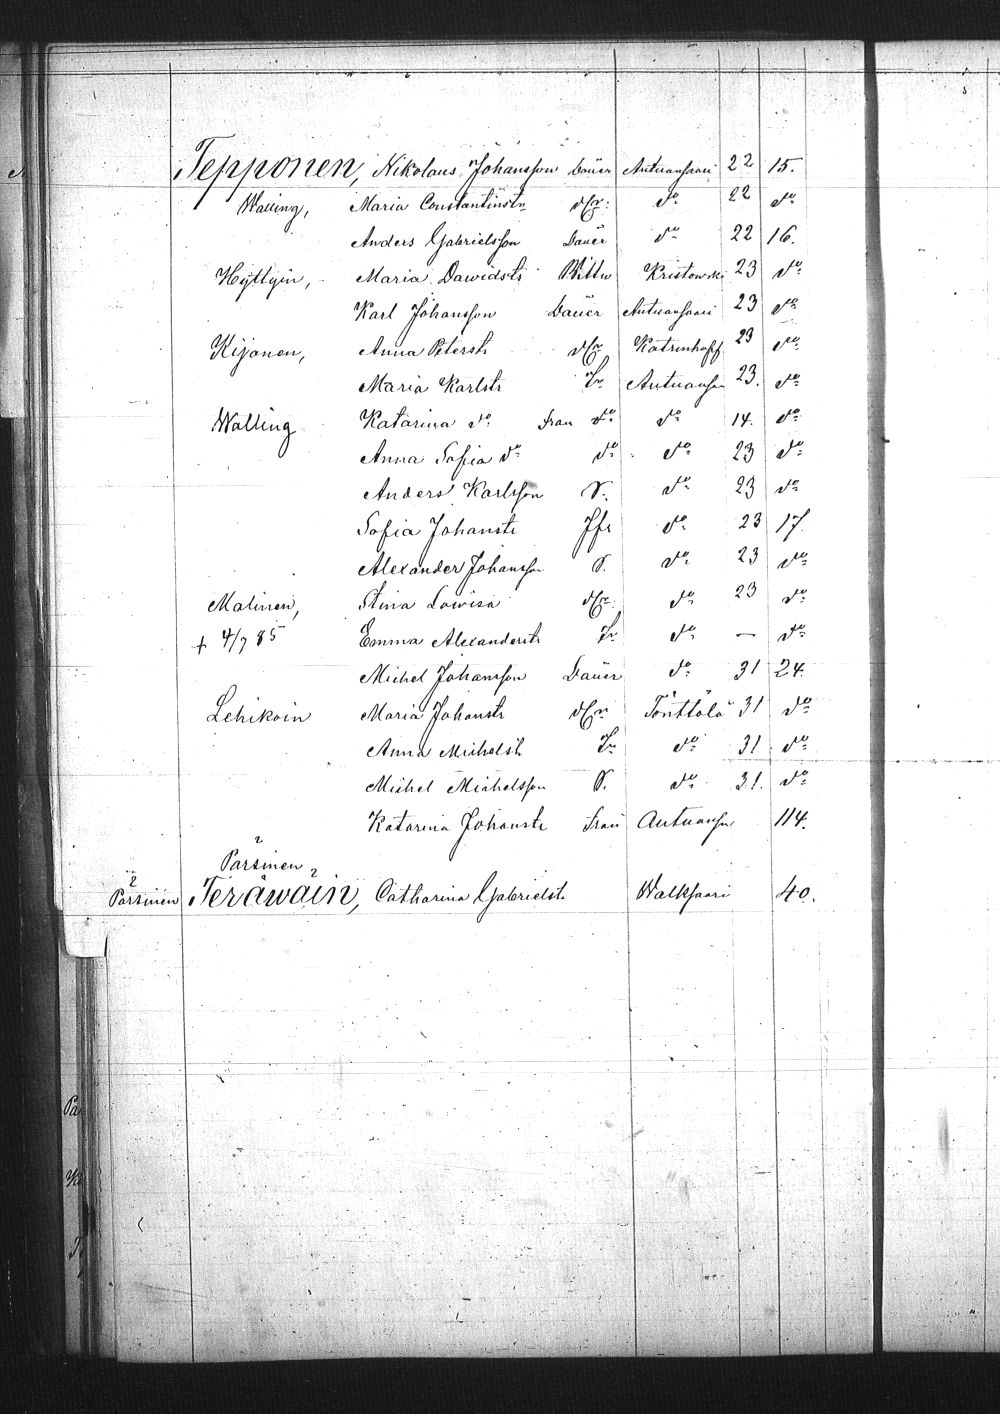 Tepponen, Nikolaus Johansson Bauer Autuansaari 22 15.
Walling, Maria Constantinstr dEr: do 22 do
Anders Gabrielsson Bauer do 22 16.
Hyttyin, Maria Dawidstr Wittw Kristowski 23 do
Karl Johansson Bauer Autuansaari 23 do
Kijanen, Anna Peterstr dEr Katrinhoff 23 do
Maria Karlstr Tr Autuansa 23. do
Walling Katarina do Frau do do 14. do
Anna Sofia do do do 23 do
Anders Karlsson S. do 23 do
Sofia Johanstr Jfr do 23 17.
Alexander Johansson S. do 23 do
Malinen, Stina Lowisa dEr do 23 do
+ 4/7 85 Emma Alexanderstr Tr do — do
Michel Johansson Bauer do 31 24.
Lehikoin Maria Johanstr dEr Tönttölä 31 do
Anna Michelstr Tr do 31 do
Michel Michelsson S. do 31. do
Katarina Johanstr Frau Autuansn 114.
2
Parsinen 2
2
Parsinen Teräwäin, Catharina Gabrielstr Walksaari 40.